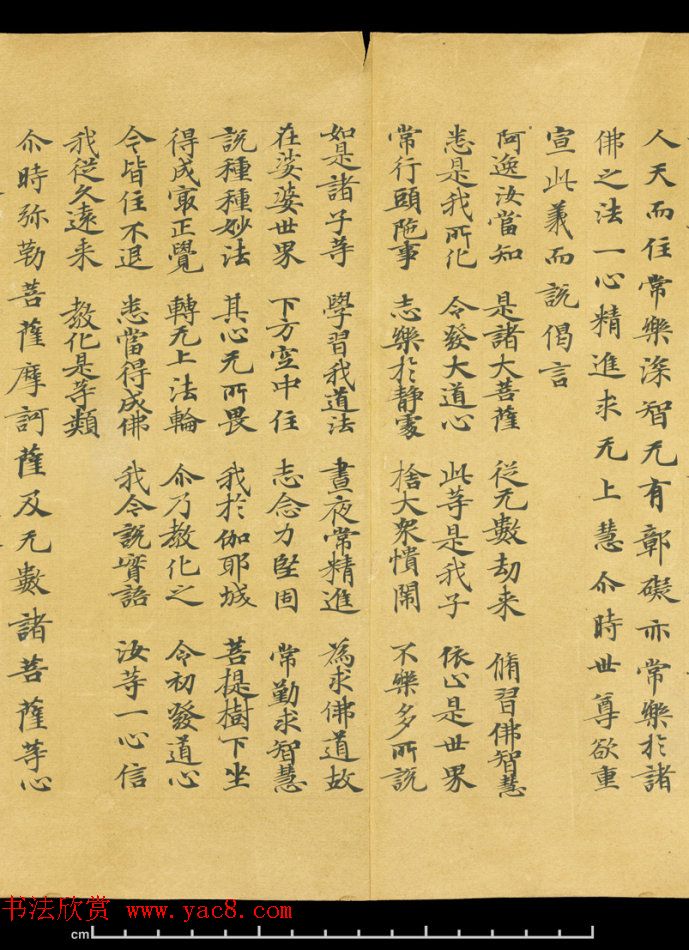 人天而住常樂深智无有鄣礙亦常樂於諸
佛之法一心精進求无上慧尒時世尊欲重
宣此義而說偈言
阿逸汝當知 是諸大菩薩 從无數劫来 脩習佛智慧
悉是我所化 令發大道心 此等是我子 依止是世界
常行頭陁事 志樂於静處 捨大衆憒閙 不樂多所說
如是諸子等 學習我道法 晝夜常精進 為求佛道故
在娑婆世界 下方空中住 志念力堅固 常勤求智慧
說種種妙法 其心无所畏 我於伽耶城 菩提樹下坐
得成㝡正覺 轉无上法輪 尒乃教化之 令初發道心
令皆住不退 悉當得成佛 我今說實語 汝等一心信
我從久遠来 教化是等類
尒時弥勒菩薩摩訶薩及无數諸菩薩等心
书法欣赏 www.yac8.com
cm